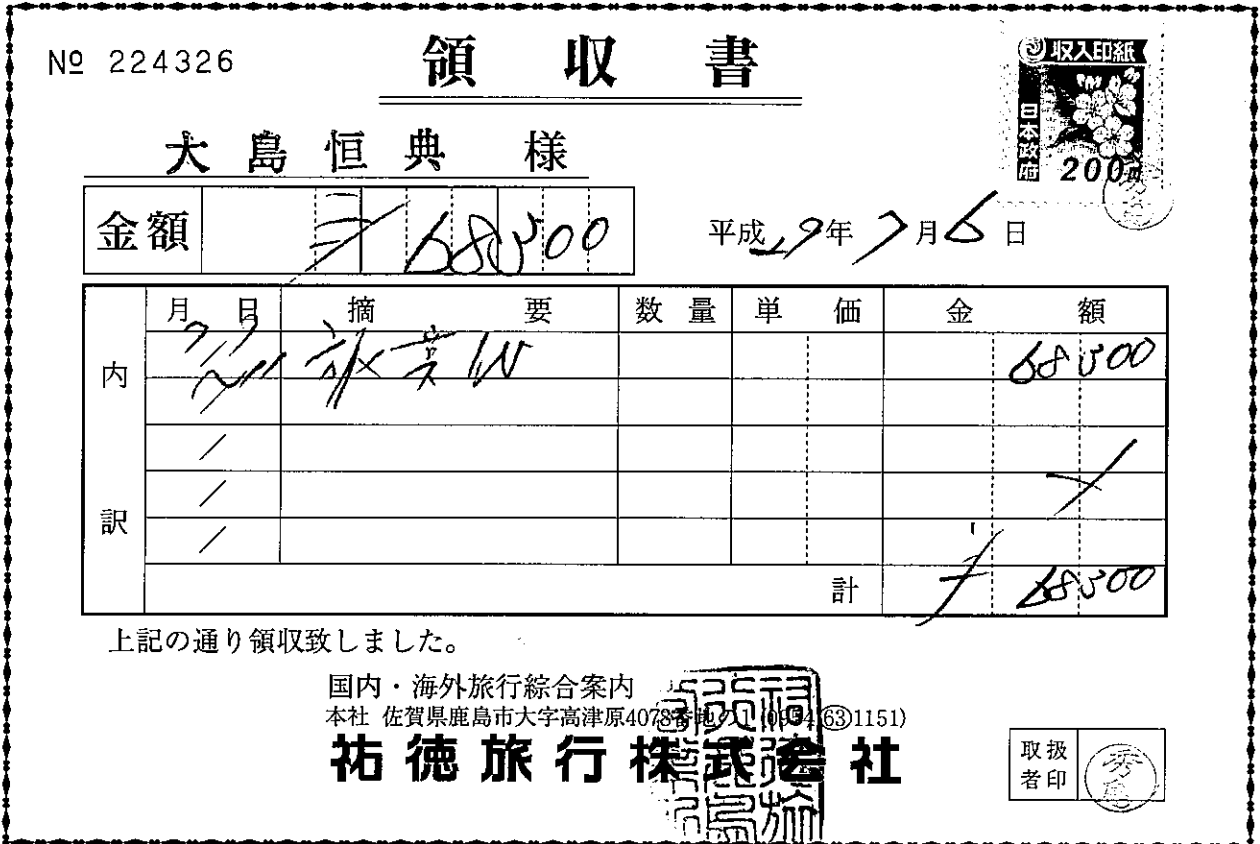 № 224326
領収書
収入印紙
日本政府
200円
大島恒典 様
金額 68500
平成29年7月6日
内訳
月日 摘要 数量 単価 金額
7/7 68500
/
/
/
計 68500
上記の通り領収致しました。
国内・海外旅行綜合案内
本社 佐賀県鹿島市大字高津原4078番地の1 (0954 63 1151)
祐徳旅行株式会社
取扱者印